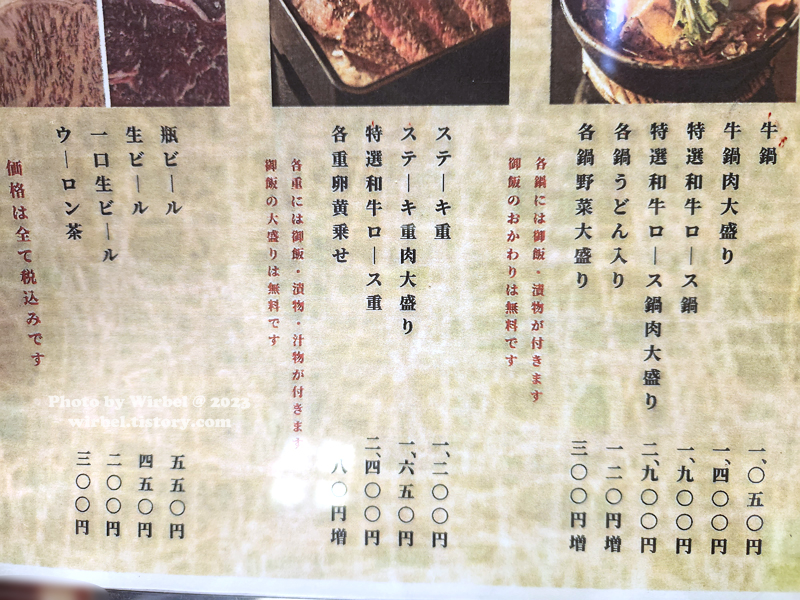 牛鍋 一、〇五〇円
牛鍋肉大盛り 一、四〇〇円
特選和牛ロース鍋 一、九〇〇円
特選和牛ロース鍋肉大盛り 二、九〇〇円
各鍋うどん入り 一二〇円増
各鍋野菜大盛り 三〇〇円増
各鍋には御飯・漬物が付きます
御飯のおかわりは無料です
ステーキ重 一、二〇〇円
ステーキ重肉大盛り 一、六五〇円
特選和牛ロース重 二、四〇〇円
各重卵黄乗せ 八〇円増
各重には御飯・漬物・汁物が付きます
御飯の大盛りは無料です
瓶ビール 五五〇円
生ビール 四五〇円
一口生ビール 二〇〇円
ウーロン茶 三〇〇円
価格は全て税込みです
Photo by Wirbel @ 2023
wirbel.tistory.com